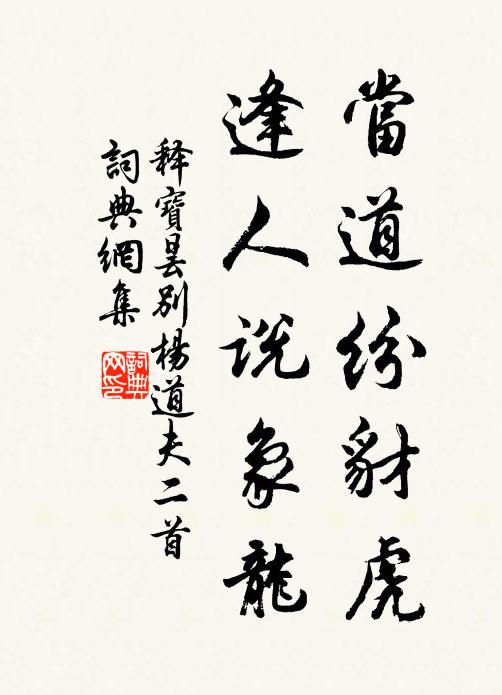 當道紛豺虎
逢人说象龍
释寶曇別楊道夫二首
詞典網集
詞典
网印